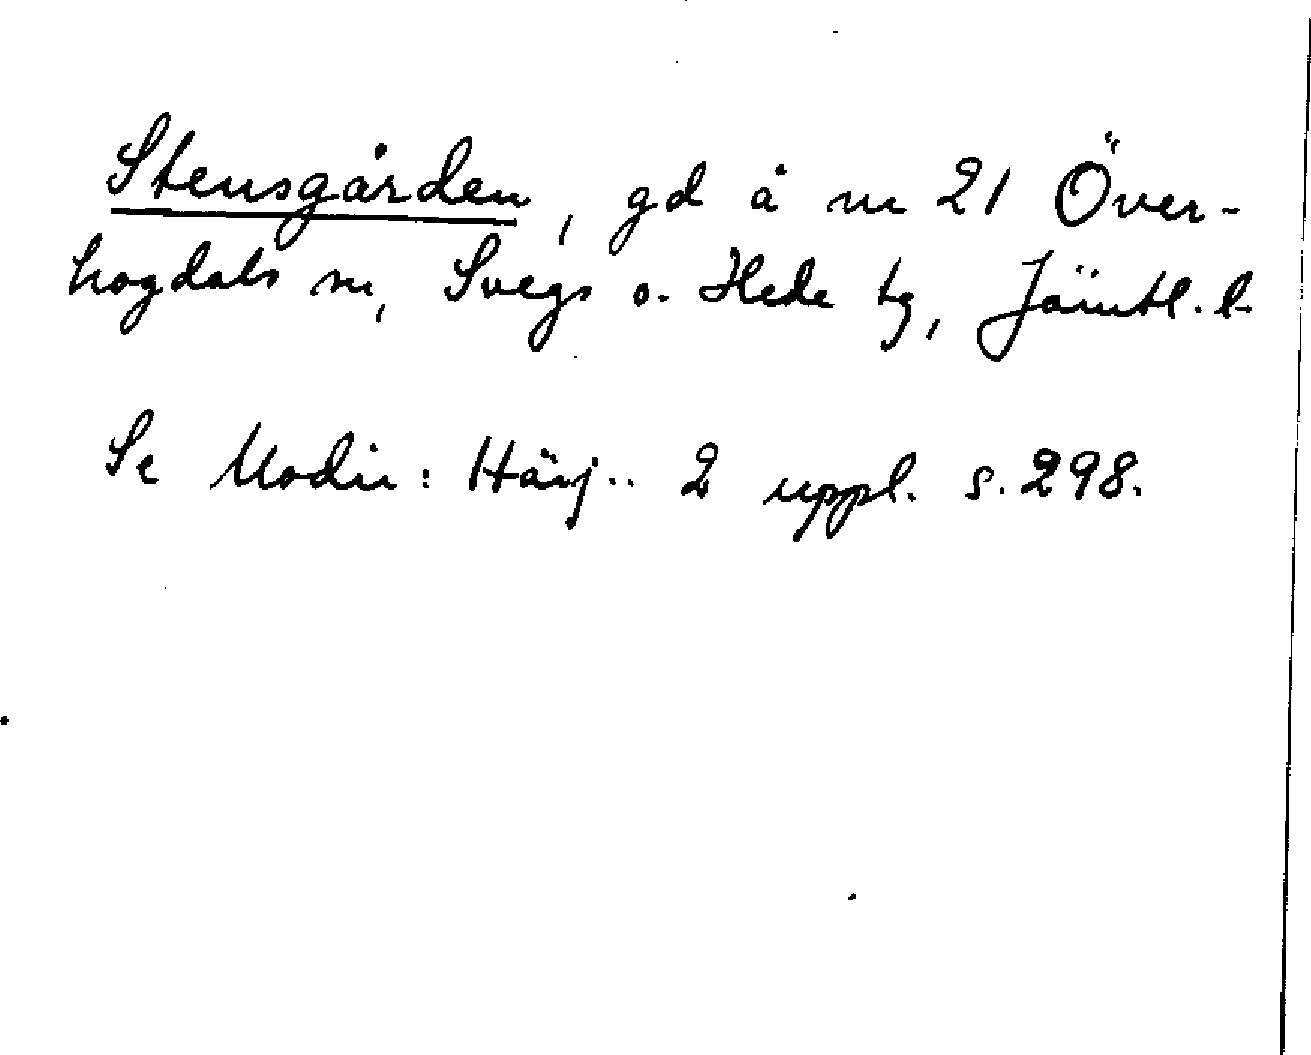 Stensgården, gd å nr 21 Över-
hogdals sn, Svegs o. Hede tg, Jämtl. l.
Se Modin: Härj.. 2 uppl. s. 298.